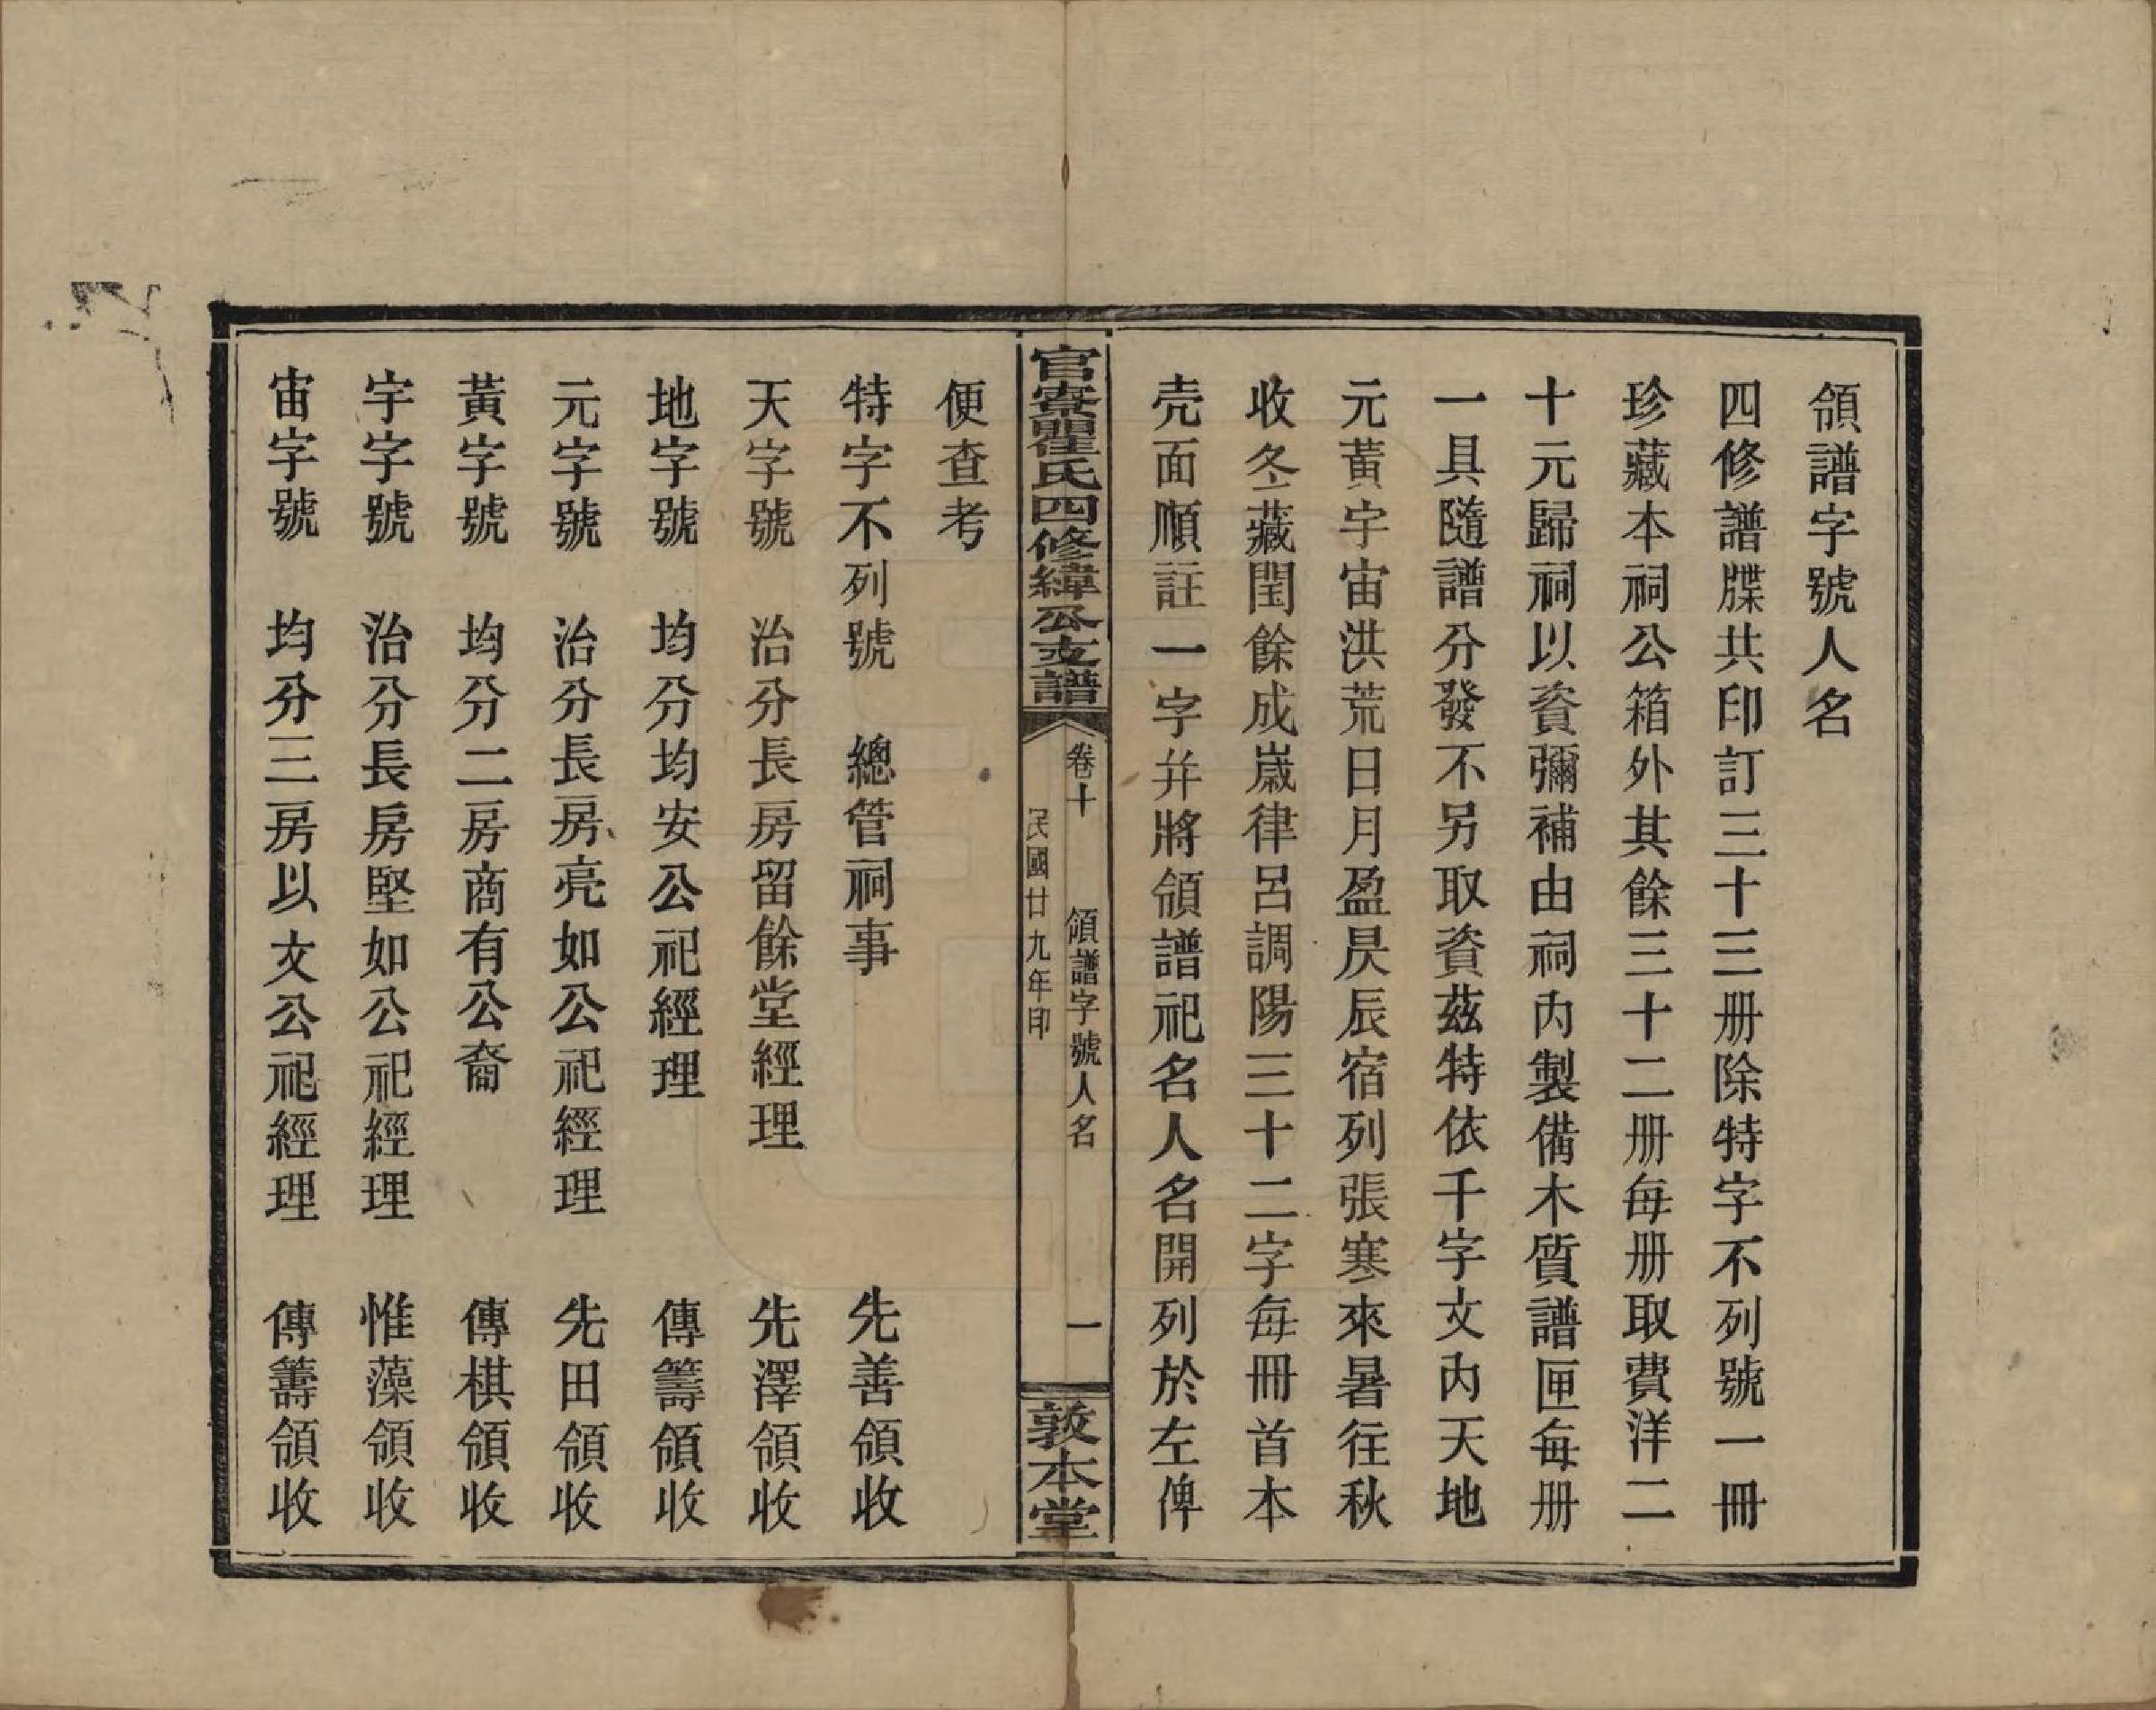 領譜字號人名
四修譜牒共印訂三十三册除特字不列號一冊
珍藏本祠公箱外其餘三十二册每册取費洋二
十元歸祠以資彌補由祠內製備木質譜匣每册
一具隨譜分發不另取資茲特依千字文內天地
元黃宇宙洪荒日月盈昃辰宿列張寒來暑往秋
收冬藏閏餘成嵗律呂調陽三十二字每冊首本
壳面順註一字并將領譜祀名人名開列於左俾
官寮瞿氏四修緯公支譜
卷十
領譜字號人名
一
民國廿九年印
敦本堂
便查考
特字不列號 總管祠事 先善領收
天字號 治分長房留餘堂經理 先澤領收
地字號 均分均安公祀經理 傳籌領收
元字號 治分長房亮如公祀經理 先田領收
黃字號 均分二房商有公裔 傳棋領收
宇字號 治分長房堅如公祀經理 惟藻領收
宙字號 均分三房以文公祀經理 傳籌領收